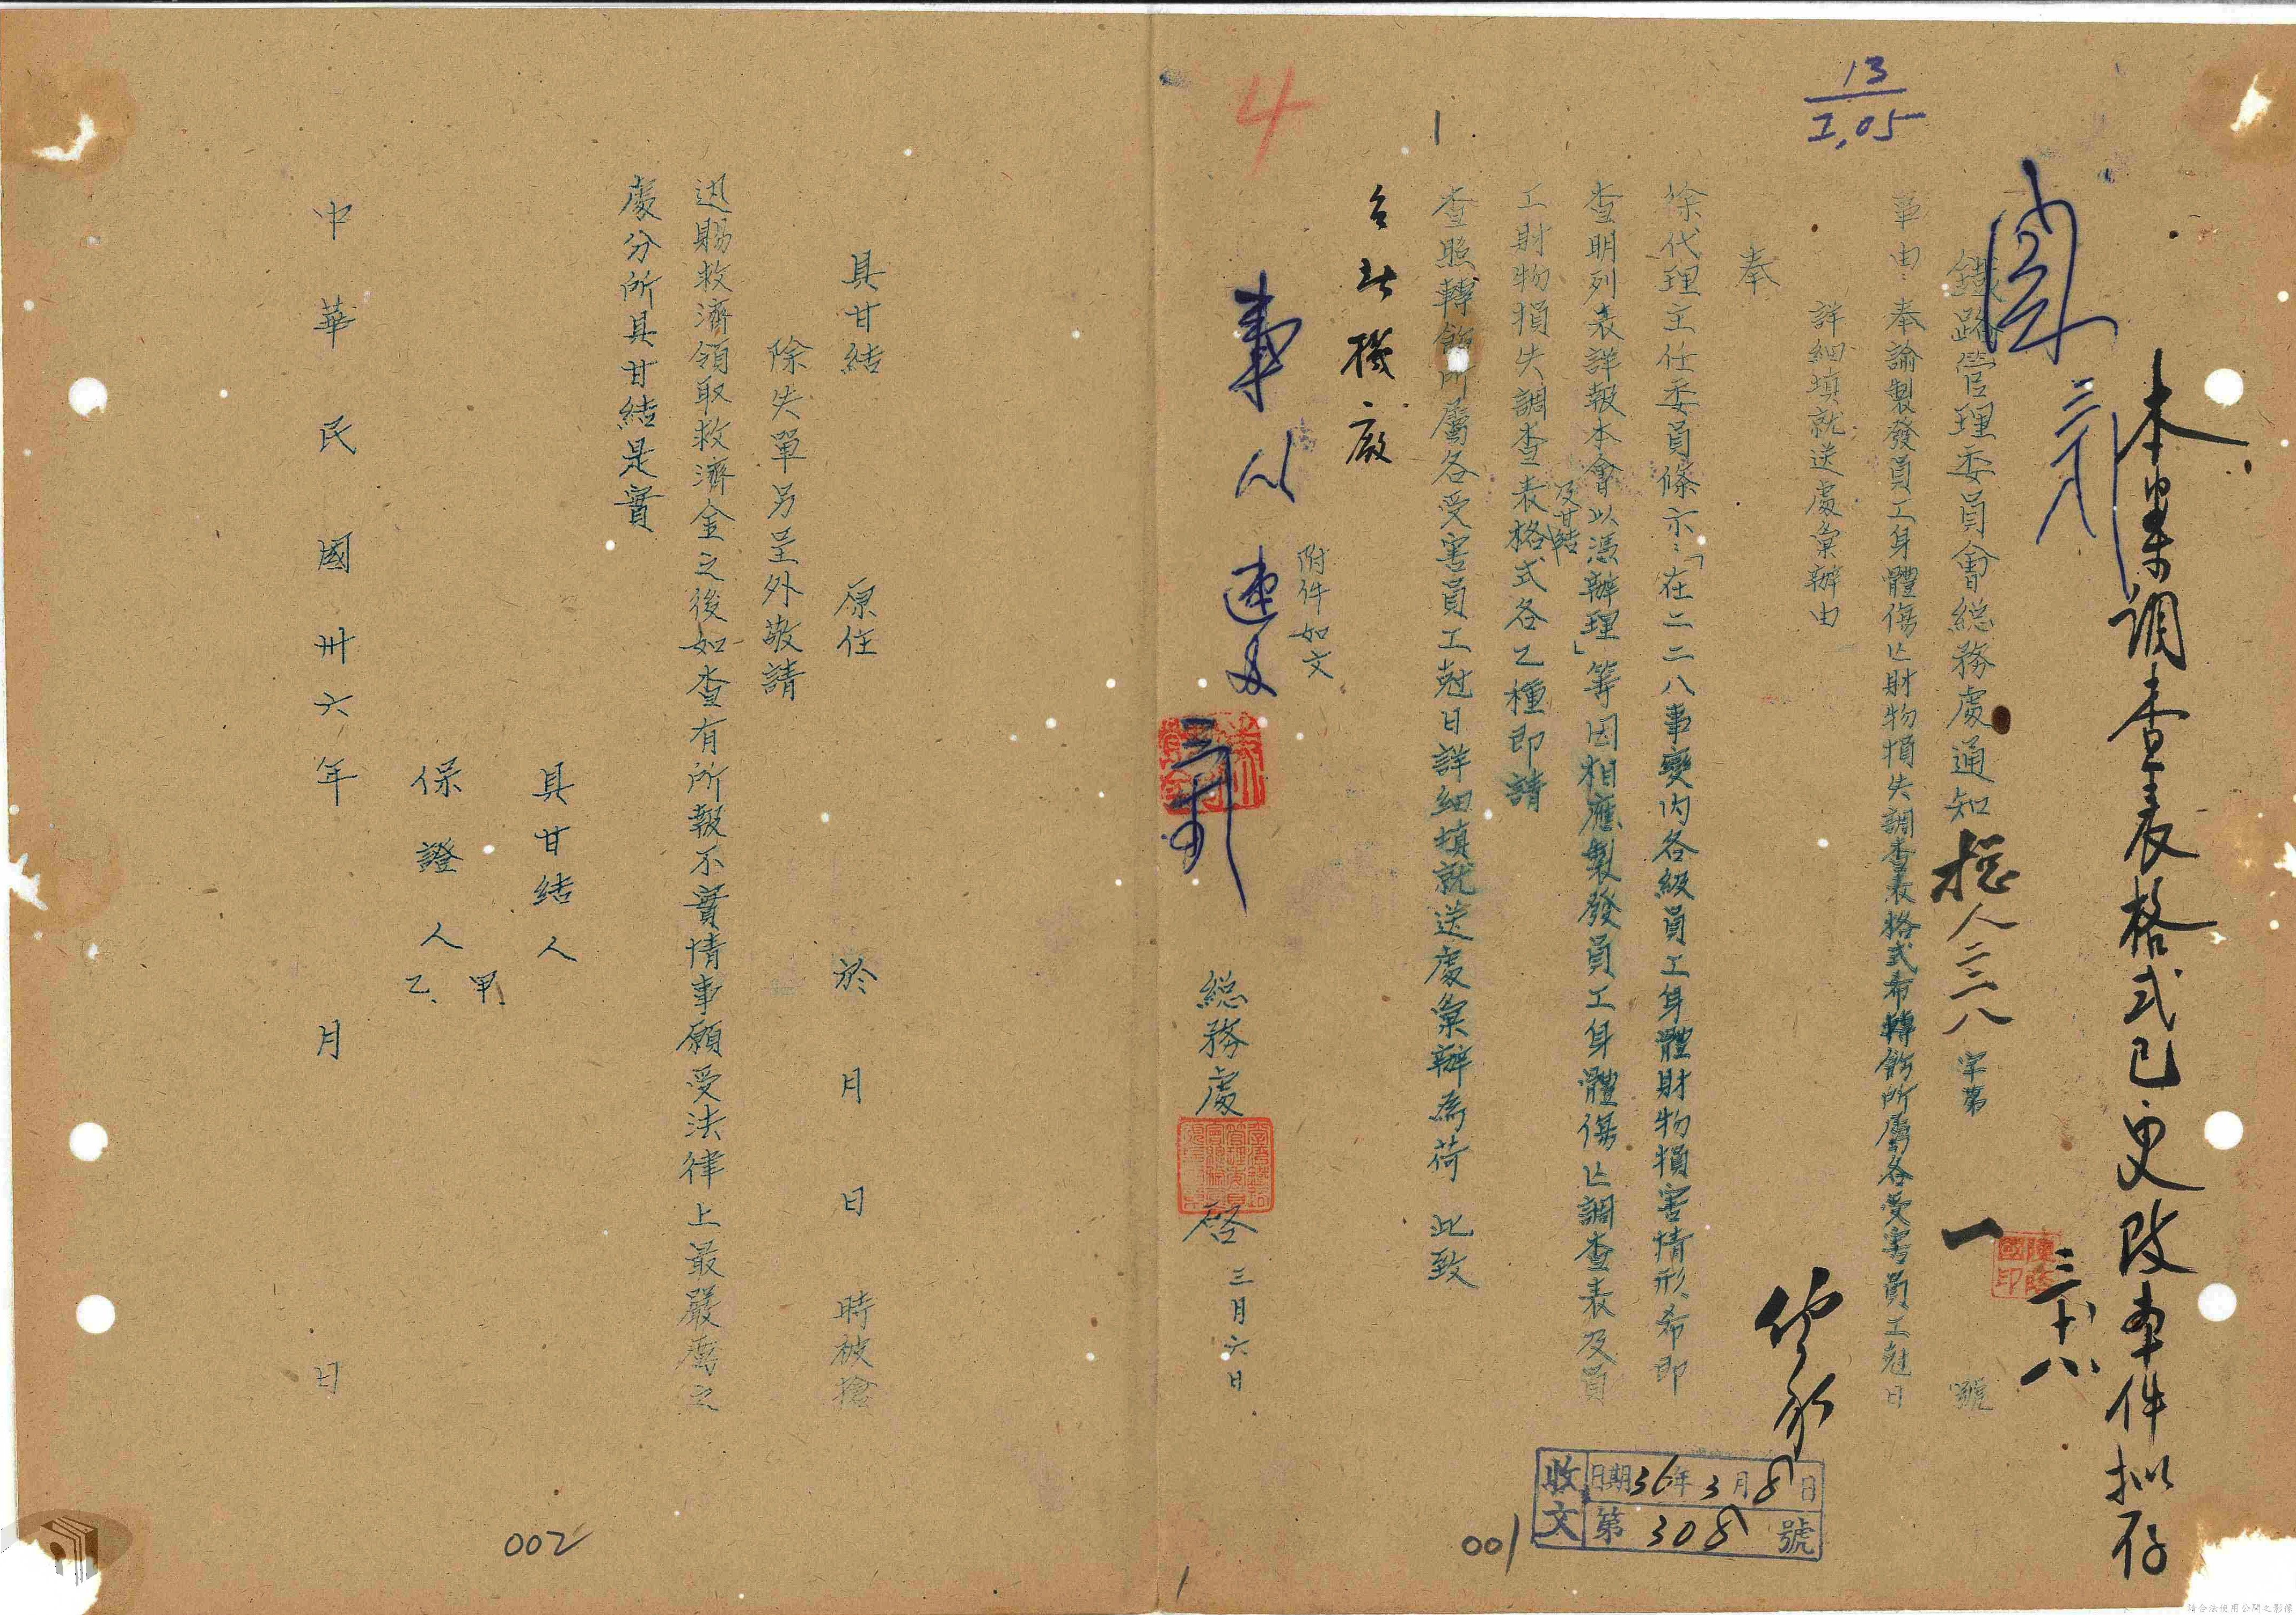 本案調查表格式已更改本件擬存
三十八
閱
13
I,05
鐵路管理委員會総務處通知
総人二二八字第 一 號
事由：奉諭製發員工身體傷亡財物損失調查表格式希轉飭所屬各受害員工尅日
詳細填就送處彙辦由
奉
徐代理主任委員條示：「在二二八事變內各級員工身體財物損害情形希即
查明列表詳報本會以憑辦理」等因相應製發員工身體傷亡調查表及員
工財物損失調查表及甘結格式各乙種即請
查照轉飭所屬各受害員工尅日詳細填就送處彙辦為荷 此致
台北機廠
附件如文
総務處 啓 三月六日
4
1
收文 日期36年3月8日
第308號
001
具甘結 原住 於 月 日 時被搶
除失單另呈外敬請
迅賜救濟領取救濟金之後如查有所報不實情事願受法律上最嚴厲之
處分所具甘結是實
具甘結人
保證人 甲、
乙、
中華民國卅六年 月 日
002
1
請合法使用公開之影像